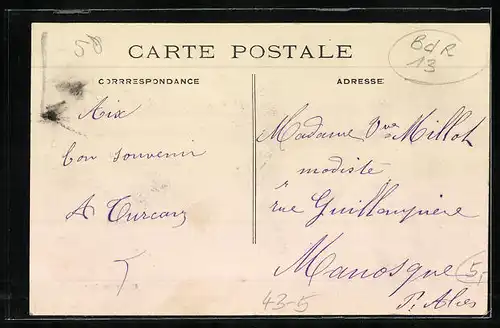 50
CARTE POSTALE
BdR
13
CORRRESPONDANCE
ADRESSE
Aix
bon souvenir
A Turcan
Madame Vve Millot
modiste
rue Guillempierre
Manosque
5,
B. Alpes
43-5